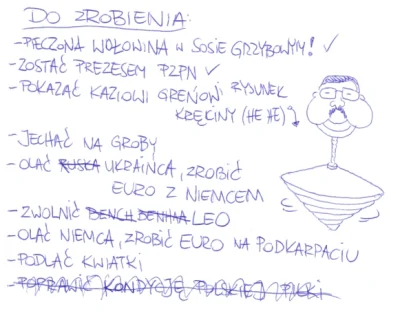 DO ZROBIENIA:
- PIECZONA WOŁOWINA W SOSIE GRZYBOWYM! ✓
- ZOSTAĆ PREZESEM PZPN ✓
- POKAZAĆ KAZIOWI GRENIOWI RYSUNEK
KRĘCINY (HE HE)
- JECHAĆ NA GROBY
- OLAĆ RUSKA UKRAIŃCA, ZROBIĆ
EURO Z NIEMCEM
- ZWOLNIĆ BENHA LEO
- OLAĆ NIEMCA, ZROBIĆ EURO NA PODKARPACIU
- PODLAĆ KWIATKI
- POPRAWIĆ KONDYCJĘ POLSKIEJ PIŁKI